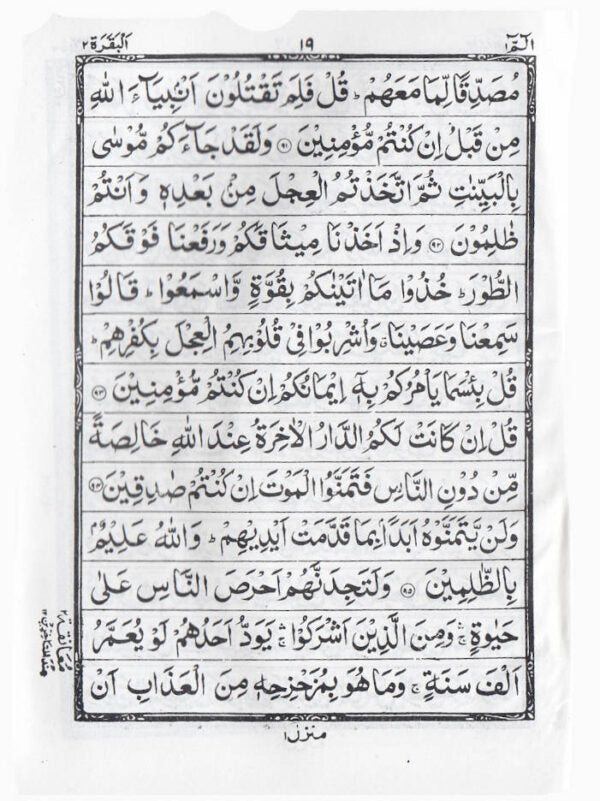 الٓمّٓ ١ ١٩ اَلْبَقَرَة ٢
مُصَدِّقًا لِّمَا مَعَهُمْ ؕ قُلْ فَلِمَ تَقْتُلُوْنَ اَنْۢبِيَآءَ اللّٰهِ
مِنْ قَبْلُ اِنْ كُنْتُمْ مُّؤْمِنِيْنَ ﴿۹۱﴾ وَلَقَدْ جَآءَكُمْ مُّوْسٰى
بِالْبَيِّنٰتِ ثُمَّ اتَّخَذْتُمُ الْعِجْلَ مِنْۢ بَعْدِهٖ وَاَنْتُمْ
ظٰلِمُوْنَ ﴿۹۲﴾ وَاِذْ اَخَذْنَا مِيْثَاقَكُمْ وَرَفَعْنَا فَوْقَكُمُ
الطُّوْرَ ؕ خُذُوْا مَاۤ اٰتَيْنٰكُمْ بِقُوَّةٍ وَّاسْمَعُوْا ؕ قَالُوْا
سَمِعْنَا وَعَصَيْنَا ۗ وَاُشْرِبُوْا فِيْ قُلُوْبِهِمُ الْعِجْلَ بِكُفْرِهِمْ ؕ
قُلْ بِئْسَمَا يَاْمُرُكُمْ بِهٖۤ اِيْمَانُكُمْ اِنْ كُنْتُمْ مُّؤْمِنِيْنَ ﴿۹۳﴾
قُلْ اِنْ كَانَتْ لَكُمُ الدَّارُ الْاٰخِرَةُ عِنْدَ اللّٰهِ خَالِصَةً
مِّنْ دُوْنِ النَّاسِ فَتَمَنَّوُا الْمَوْتَ اِنْ كُنْتُمْ صٰدِقِيْنَ ﴿۹۴﴾
وَلَنْ يَّتَمَنَّوْهُ اَبَدًۢا بِمَا قَدَّمَتْ اَيْدِيْهِمْ ؕ وَاللّٰهُ عَلِيْمٌۢ
بِالظّٰلِمِيْنَ ﴿۹۵﴾ وَلَتَجِدَنَّهُمْ اَحْرَصَ النَّاسِ عَلٰى
حَيٰوةٍ ۛۚ وَمِنَ الَّذِيْنَ اَشْرَكُوْا ۛۚ يَوَدُّ اَحَدُهُمْ لَوْ يُعَمَّرُ
اَلْفَ سَنَةٍ ۚ وَمَا هُوَ بِمُزَحْزِحِهٖ مِنَ الْعَذَابِ اَنْ
مُعَانقة ٢
منزل ١